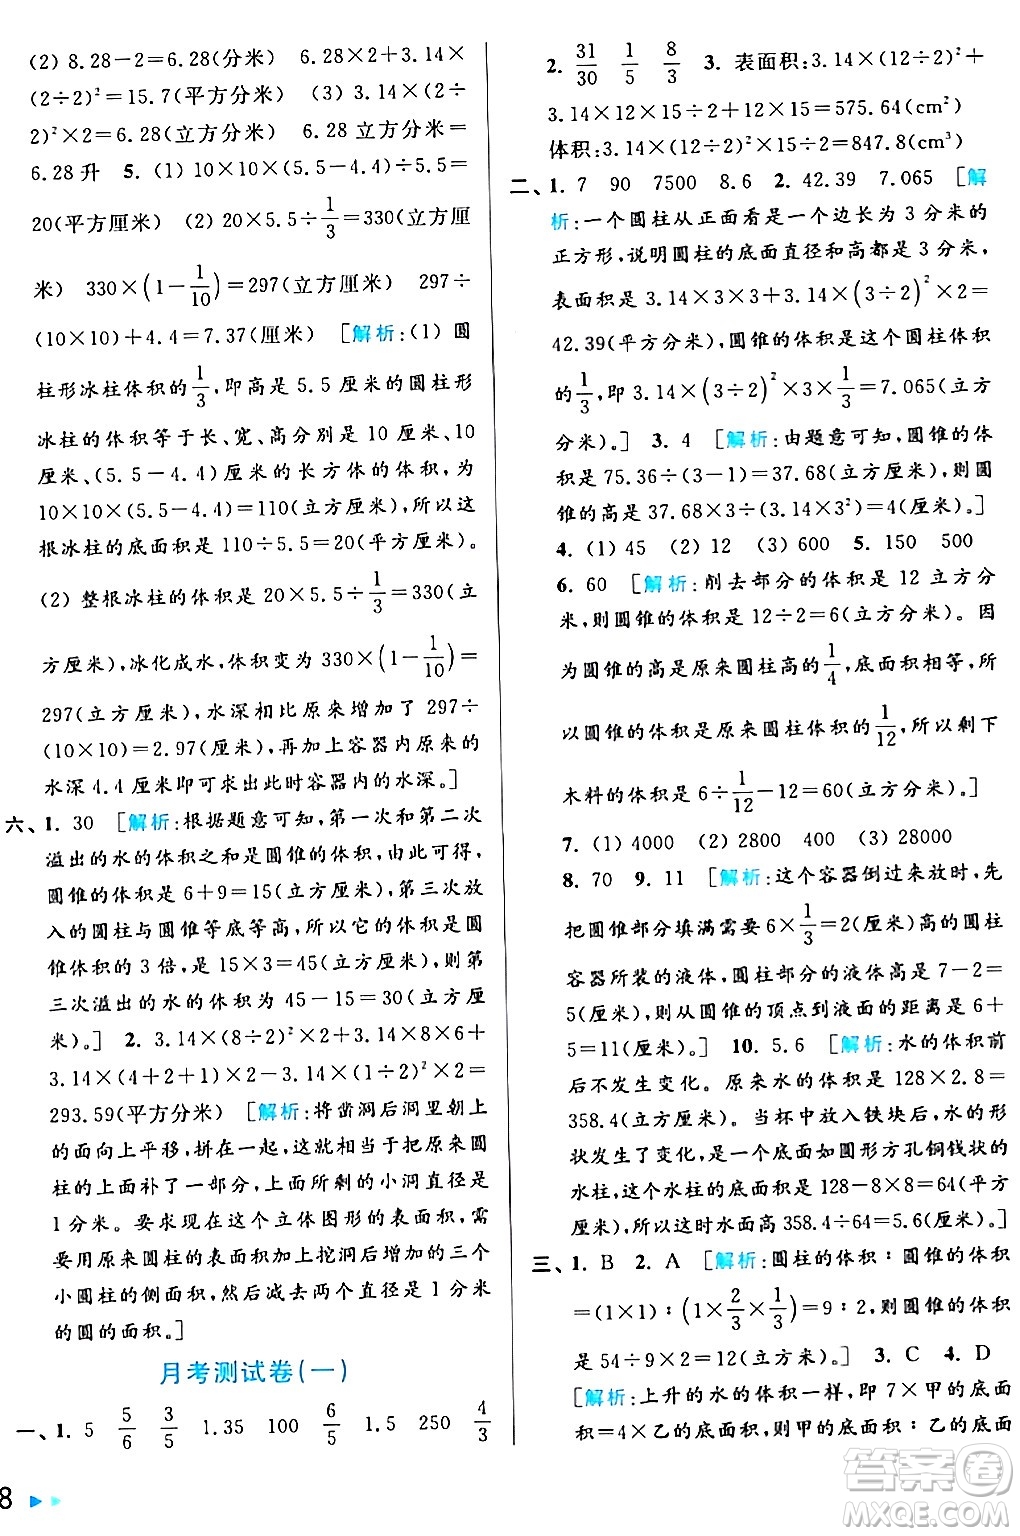 (2) 8.28－2＝6.28(分米)　6.28×2＋3.14×
(2÷2)²＝15.7(平方分米)　(3) 3.14×(2÷
2)²×2＝6.28(立方分米)　6.28 立方分米＝
6.28 升　5. (1) 10×10×(5.5－4.4)÷5.5＝
20(平方厘米)　(2) 20×5.5÷1/3＝330(立方厘
米)　330×(1－1/10)＝297(立方厘米)　297÷
(10×10)＋4.4＝7.37(厘米)　[解析:(1) 圆
柱形冰柱体积的1/3,即高是 5.5 厘米的圆柱形
冰柱的体积等于长、宽、高分别是 10 厘米、10
厘米、(5.5－4.4)厘米的长方体的体积,为
10×10×(5.5－4.4)＝110(立方厘米),所以这
根冰柱的底面积是 110÷5.5＝20(平方厘米)。
(2) 整根冰柱的体积是 20×5.5÷1/3＝330(立
方厘米),冰化成水,体积变为 330×(1－1/10)＝
297(立方厘米),水深相比原来增加了 297÷
(10×10)＝2.97(厘米),再加上容器内原来的
水深 4.4 厘米即可求出此时容器内的水深。]
六、1. 30　[解析:根据题意可知,第一次和第二次
溢出的水的体积之和是圆锥的体积,由此可得,
圆锥的体积是 6＋9＝15(立方厘米),第三次放
入的圆柱与圆锥等底等高,所以它的体积是圆
锥体积的 3 倍,是 15×3＝45(立方厘米),则第
三次溢出的水的体积为 45－15＝30(立方厘
米)。]　2. 3.14×(8÷2)²×2＋3.14×8×6＋
3.14×(4＋2＋1)×1－3.14×(1÷2)²×2＝
293.59(平方分米)　[解析:将凿洞后洞里朝上
的面向上平移,拼在一起,就相当于把原来圆
柱的上面补了一部分,上面所剩的小洞直径是
1 分米。要求现在这个立体图形的表面积,需
要用原来圆柱的表面积加上挖洞后增加的三个
小圆柱的侧面积,然后减去两个直径是 1 分米
的圆的面积。]
月考测试卷(一)
一、1. 5　5/6　3/5　1.35　100　6/5　1.5　250　4/3
2. 31/30　1/5　8/3　3. 表面积:3.14×(12÷2)²＋
3.14×12×15÷2＋12×15＝575.64(cm²)
体积:3.14×(12÷2)²×15÷2＝847.8(cm³)
二、1. 7　90　7500　8.6　2. 42.39　7.065　[解
析:一个圆柱从正面看是一个边长为 3 分米的
正方形,说明圆柱的底面直径和高都是 3 分米,
表面积是 3.14×3×3＋3.14×(3÷2)²×2＝
42.39(平方分米),圆锥的体积是这个圆柱体积
的1/3,即 3.14×(3÷2)²×3×1/3＝7.065(立方
分米)。]　3. 4　[解析:由题意可知,圆锥的体
积是 75.36÷(3－1)＝37.68(立方厘米),则圆
锥的高是 37.68×3÷(3.14×3²)＝4(厘米)。]
4. (1) 45　(2) 12　(3) 600　5. 150　500
6. 60　[解析:削去部分的体积是 12 立方分
米,则圆锥的体积是 12÷2＝6(立方分米)。因
为圆锥的高是原来圆柱高的1/4,底面积相等,所
以圆锥的体积是原来圆柱体积的1/12,所以剩下
木料的体积是 6÷1/12－12＝60(立方分米)。]
7. (1) 4000　(2) 2800　400　(3) 28000
8. 70　9. 11　[解析:这个容器倒过来放时,先
把圆锥部分填满需要 6×1/3＝2(厘米)高的圆柱
容器所装的液体,圆柱部分的液体高是 7－2＝
5(厘米),所以从圆锥的顶点到液面的距离是 6＋
5＝11(厘米)。]　10. 5.6　[解析:水的体积前
后不发生变化。原来水的体积是 128×2.8＝
358.4(立方厘米)。当杯中放入铁块后,水的形
状发生了变化,是一个底面如圆形方孔铜钱状的
水柱,这时水柱的底面积是 128－8×8＝64(平方
厘米),所以这时水面高 358.4÷64＝5.6(厘米)。]
三、1. B　2. A　[解析:圆柱的体积∶圆锥的体积
＝(1×1)∶(1×2/3×1/3)＝9∶2,则圆锥的体积
是 54÷9×2＝12(立方分米)。]　3. C　4. D
[解析:上升的水的体积一样,即 7×甲的底面
积＝4×乙的底面积,则甲的底面积∶乙的底面
8
答案圈
MXQE.COM